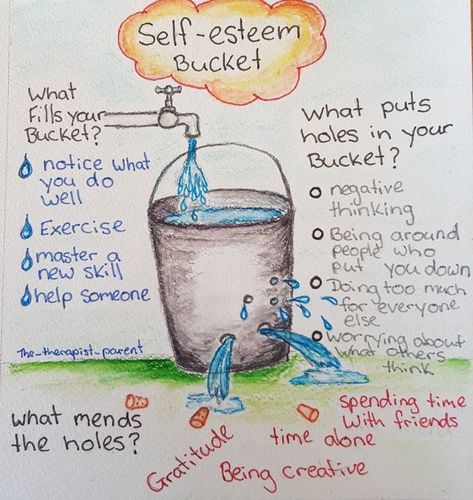 Self-esteem
Bucket
What
Fills your
Bucket?
notice what
you do
well
Exercise
master a
new skill
help someone
The_therapist_parent
what puts
holes in your
Bucket?
negative
thinking
Being around
people who
put you down
Doing too much
for everyone
else
worrying about
what others
think
what mends
the holes?
Gratitude
time alone
spending time
with friends
Being creative